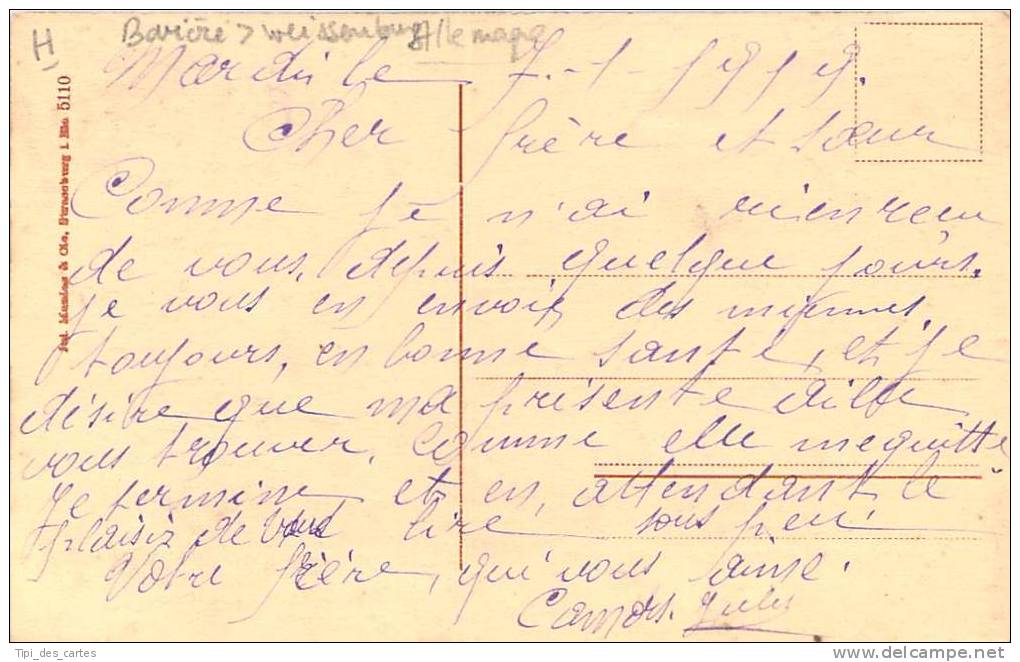 H)
Bavière > Weissenburg Allemagne
Mardi le 7-1-1919.
Cher frère et sœur
Comme je n'ai rien recu
de vous, depuis quelque jours.
je vous en envois des miennes.
toujours, en bonne santé, et je
désire que ma présente aille
vous trouver. Comme elle me quitte
Je termine et en, attendant le
plaisir de vous lire sous peu.
Votre frère, qui vous aime.
Camors. Jules
Jul. Manias & Cie, Strassburg i. Els. 5110
Tipi_des_cartes
delcampe.net